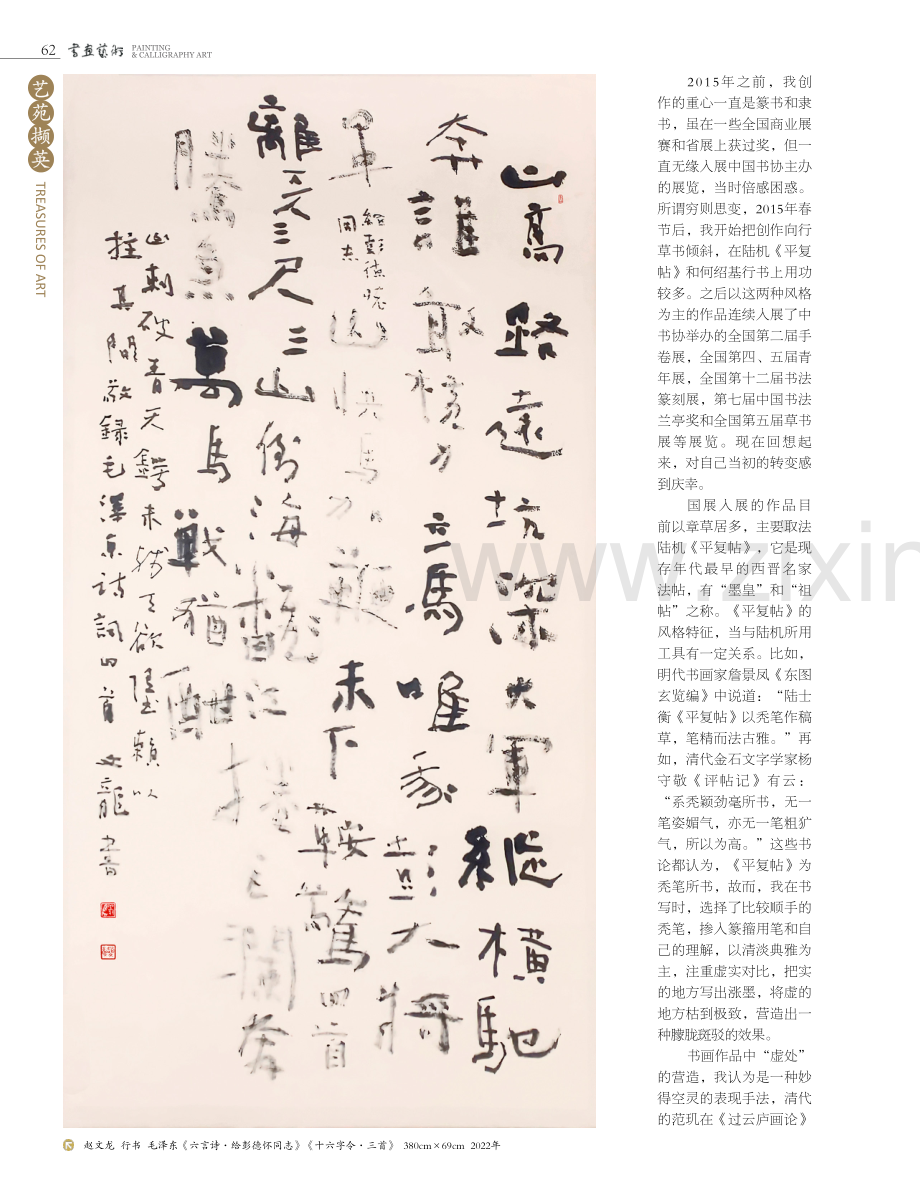 62 書畫藝術 PAINTING
& CALLIGRAPHY ART
艺苑撷英 TREASURES OF ART
山高路遠坑深大軍縱橫馳
奔誰敢橫刀立馬唯我彭大將
軍
給彭德懷
同志
山快馬加鞭未下鞍驚回首
離天三尺三山倒海翻江捲巨瀾奔
騰急萬馬戰猶酣
山刺破青天鍔未殘天欲墮賴以
拄其間敬錄毛澤東詩詞四首文龍書
赵文龙 行书 毛泽东《六言诗·给彭德怀同志》《十六字令·三首》 380cm×69cm 2022年
2015年之前，我创
作的重心一直是篆书和隶
书，虽在一些全国商业展
赛和省展上获过奖，但一
直无缘入展中国书协主办
的展览，当时倍感困惑。
所谓穷则思变，2015年春
节后，我开始把创作向行
草书倾斜，在陆机《平复
帖》和何绍基行书上用功
较多。之后以这两种风格
为主的作品连续入展了中
书协举办的全国第二届手
卷展，全国第四、五届青
年展，全国第十二届书法
篆刻展，第七届中国书法
兰亭奖和全国第五届草书
展等展览。现在回想起
来，对自己当初的转变感
到庆幸。
国展入展的作品目
前以章草居多，主要取法
陆机《平复帖》，它是现
存年代最早的西晋名家
法帖，有“墨皇”和“祖
帖”之称。《平复帖》的
风格特征，当与陆机所用
工具有一定关系。比如，
明代书画家詹景凤《东图
玄览编》中说道：“陆士
衡《平复帖》以秃笔作稿
草，笔精而法古雅。”再
如，清代金石文字学家杨
守敬《评帖记》有云：
“系秃颖劲毫所书，无一
笔姿媚气，亦无一笔粗犷
气，所以为高。”这些书
论都认为，《平复帖》为
秃笔所书，故而，我在书
写时，选择了比较顺手的
秃笔，掺入篆籀用笔和自
己的理解，以清淡典雅为
主，注重虚实对比，把实
的地方写出涨墨，将虚的
地方枯到极致，营造出一
种朦胧斑驳的效果。
书画作品中“虚处”
的营造，我认为是一种妙
得空灵的表现手法，清代
的范玑在《过云庐画论》
www.zixin